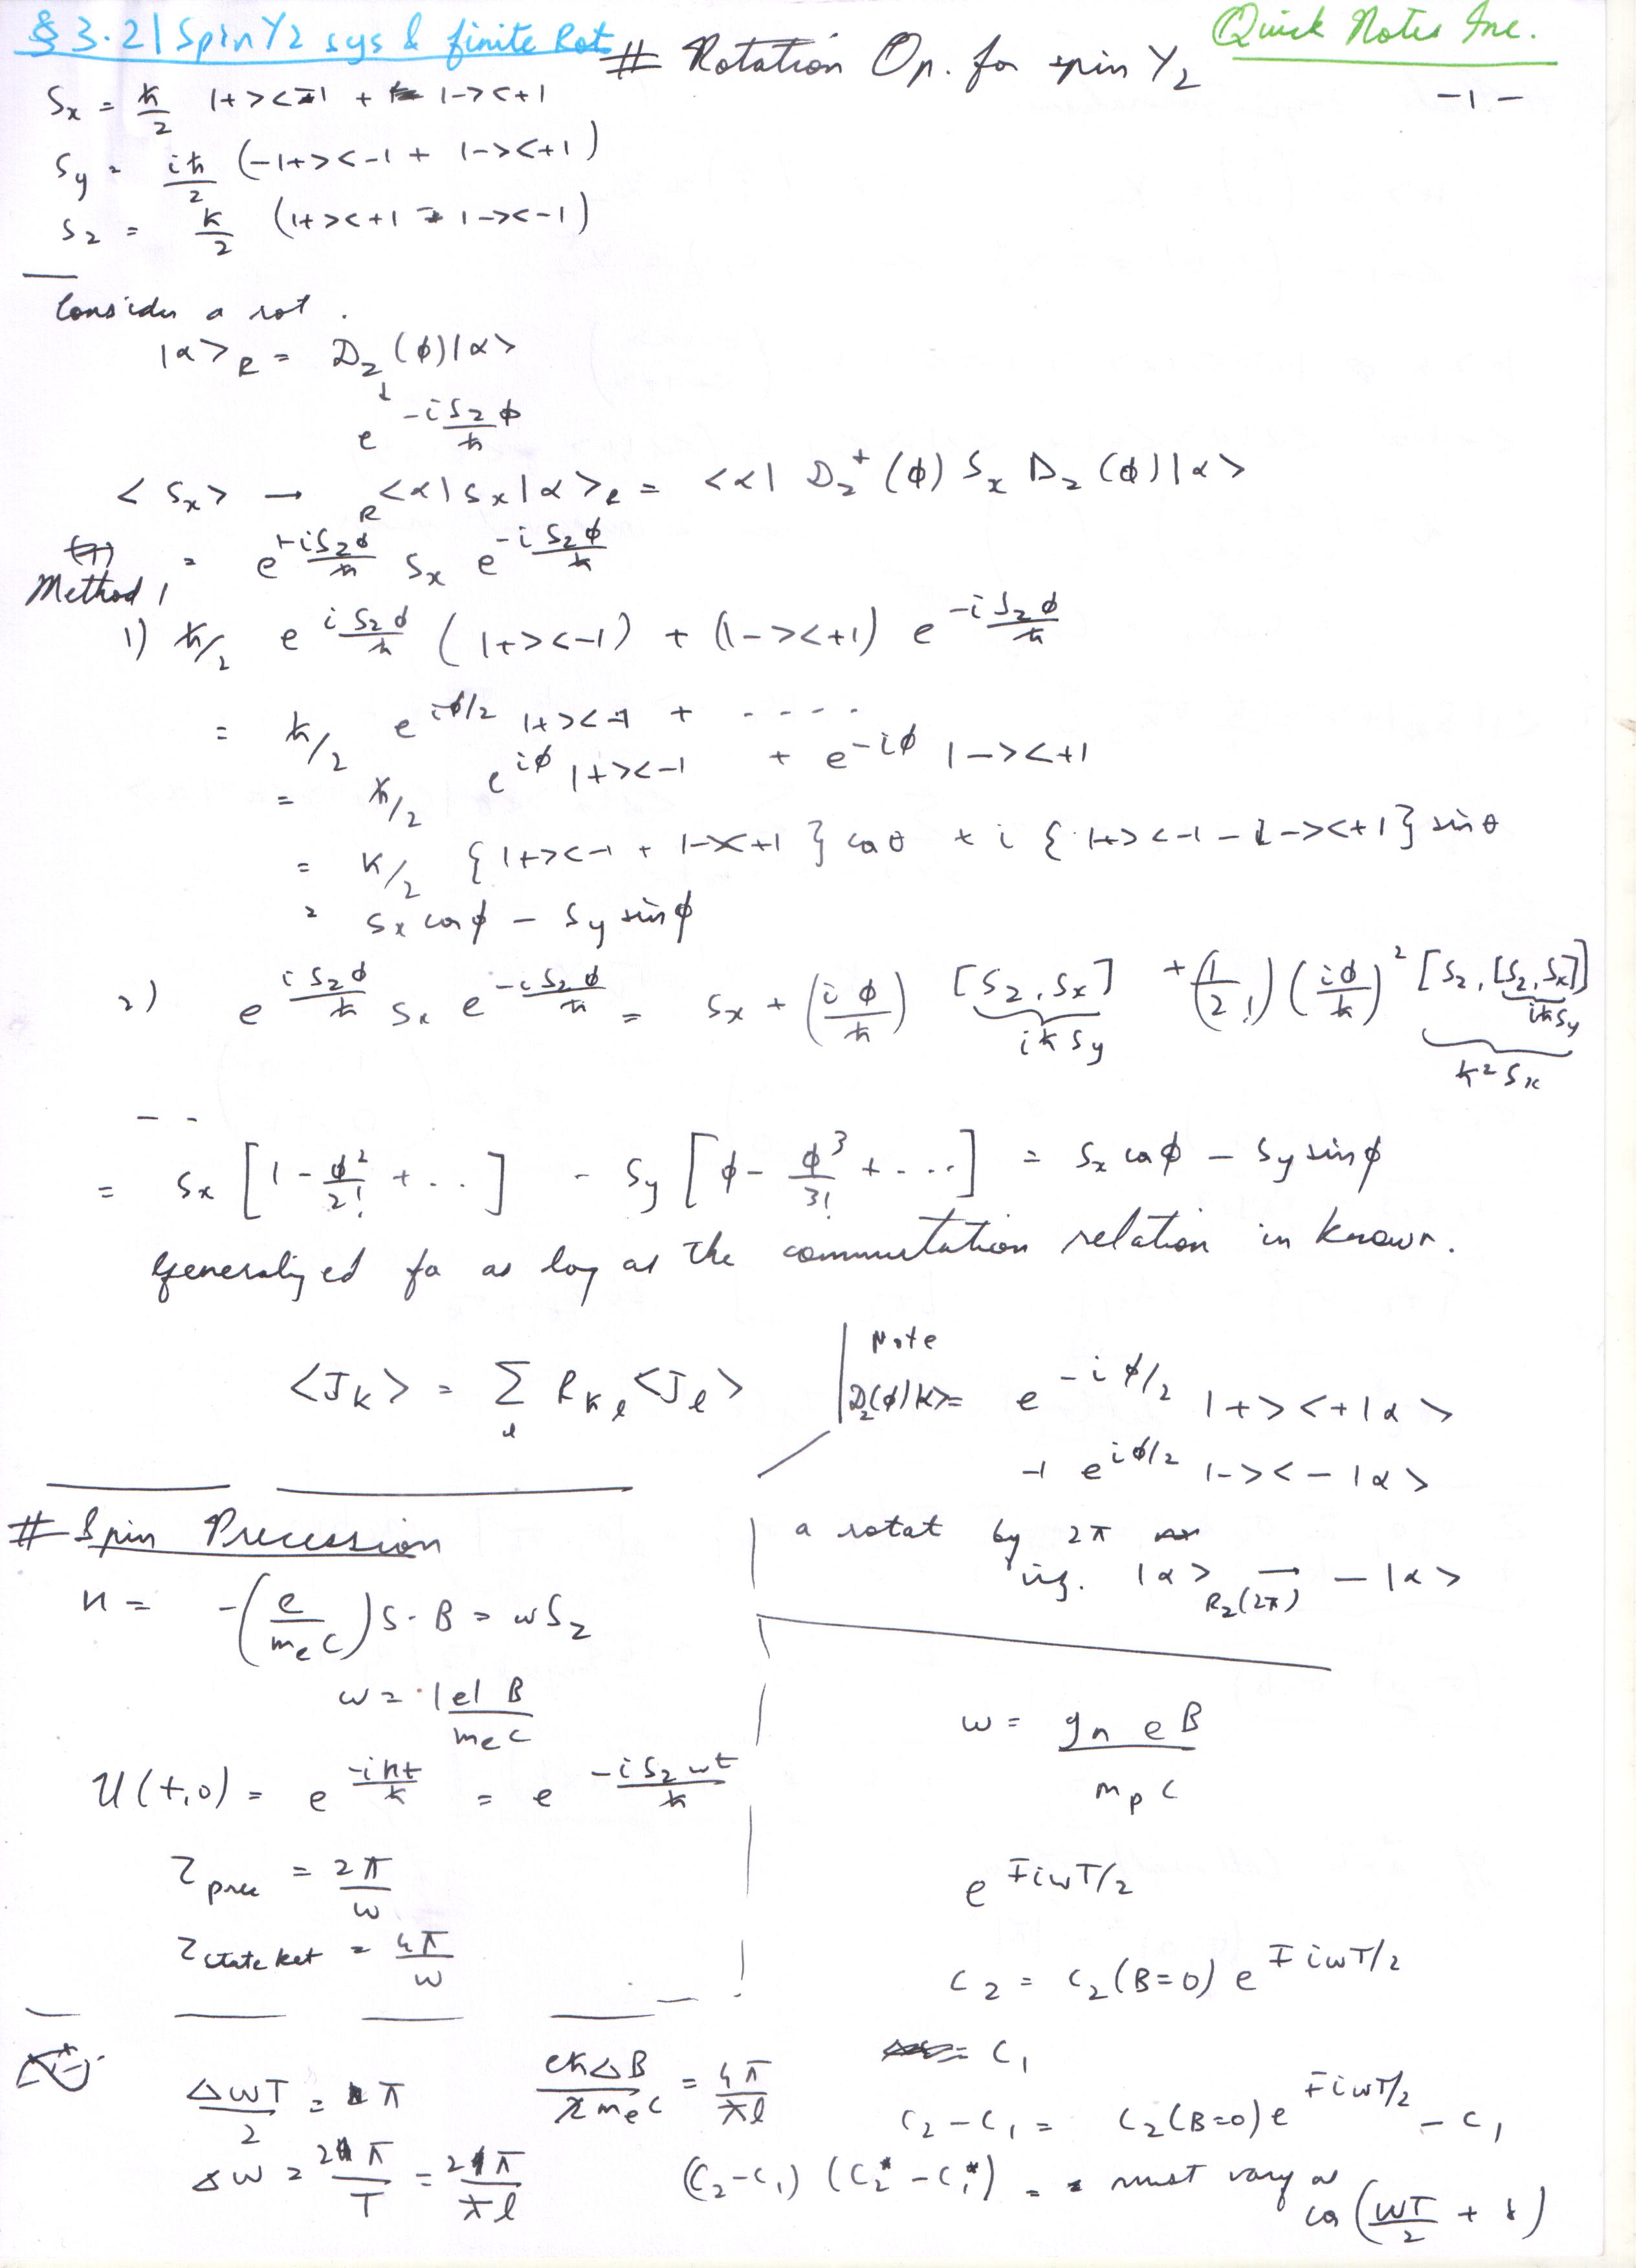 § 3.2 | Spin Y2 sys & finite Rot
# Rotation Op. for spin Y2
Quick Notes Inc.
-1-
Sx = ħ/2 |+><-| + |-><+|
Sy = iħ/2 (-|+><-| + |-><+|)
Sz = ħ/2 (|+><+| - |-><-|)
Consider a rot.
|α>_R = D_z(ϕ)|α>
↓
e^{-iS_zϕ/ħ}
<Sx> → _R<α|Sx|α>_R = <α| D_z^+(ϕ) Sx D_z(ϕ)|α>
= e^{+iS_zϕ/ħ} Sx e^{-iS_zϕ/ħ}
Method 1
1) ħ/2 e^{iS_zϕ/ħ} (|+><-|) + (|-><+|) e^{-iS_zϕ/ħ}
= ħ/2 e^{iϕ/2} |+><-| + ....
= ħ/2 e^{iϕ} |+><-| + e^{-iϕ} |-><+|
= ħ/2 {|+><-| + |-><+|} cos θ + i {|+><-| - |-><+|} sin θ
= Sx cos ϕ - Sy sin ϕ
2) e^{iS_zϕ/ħ} Sx e^{-iS_zϕ/ħ} = Sx + (iϕ/ħ) [Sz, Sx] + (1/2!) (iϕ/ħ)^2 [Sz, [Sz, Sx]]
iħSy iħSy
ħ²Sx
- -
= Sx [1 - ϕ²/2! + ..] - Sy [ϕ - ϕ³/3! + ...] = Sx cos ϕ - Sy sin ϕ
Generalized fo as log as the commutation relation in known.
<J_k> = Σ_l R_{kl} <J_l>
Note
D_z(ϕ)|α> = e^{-iϕ/2} |+><+|α>
+ e^{iϕ/2} |-><-|α>
a rotat by 2π
|α> →_{R_z(2π)} -|α>
# Spin Precession
H = -(e/m_e c) S·B = ωS_z
ω = |e|B/m_e c
U(t,0) = e^{-iHt/ħ} = e^{-iS_zωt/ħ}
τ_prec = 2π/ω
τ_state ket = 4π/ω
ω = g_n e B/m_p c
e^{∓iωT/2}
c_2 = c_2(B=0) e^{∓iωT/2}
= c_1
c_2 - c_1 = c_2(B=0) e^{∓iωT/2} - c_1
(c_2 - c_1) (c_2* - c_1*) = must vary as
cos (ωT/2 + δ)
ΔωT/2 = π
eħΔB/m_e c = 4π/ƛl
Δω = 2π/T = 2π/ƛl